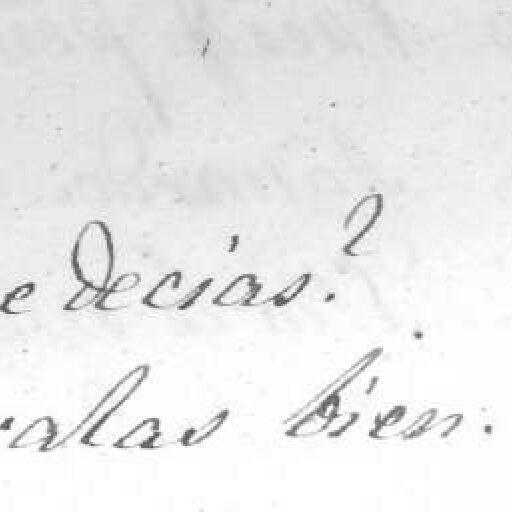 e decías?
alas bien.